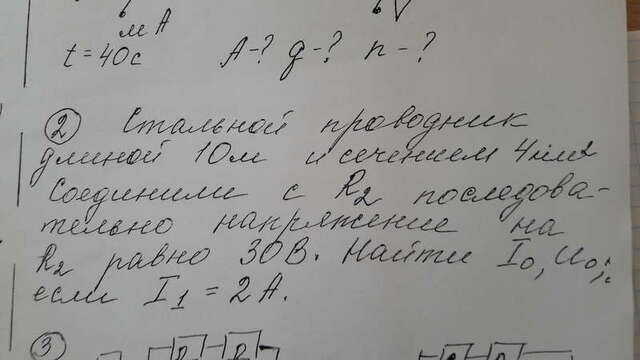 мА
t = 40с   А-? q-? n-?
② Стальной проводник
длиной 10м и сечением 4мм²
соединили с R₂ последова-
тельно напряжение на
R₂ равно 30В. Найти I₀, U₀,
если I₁ = 2А.
③